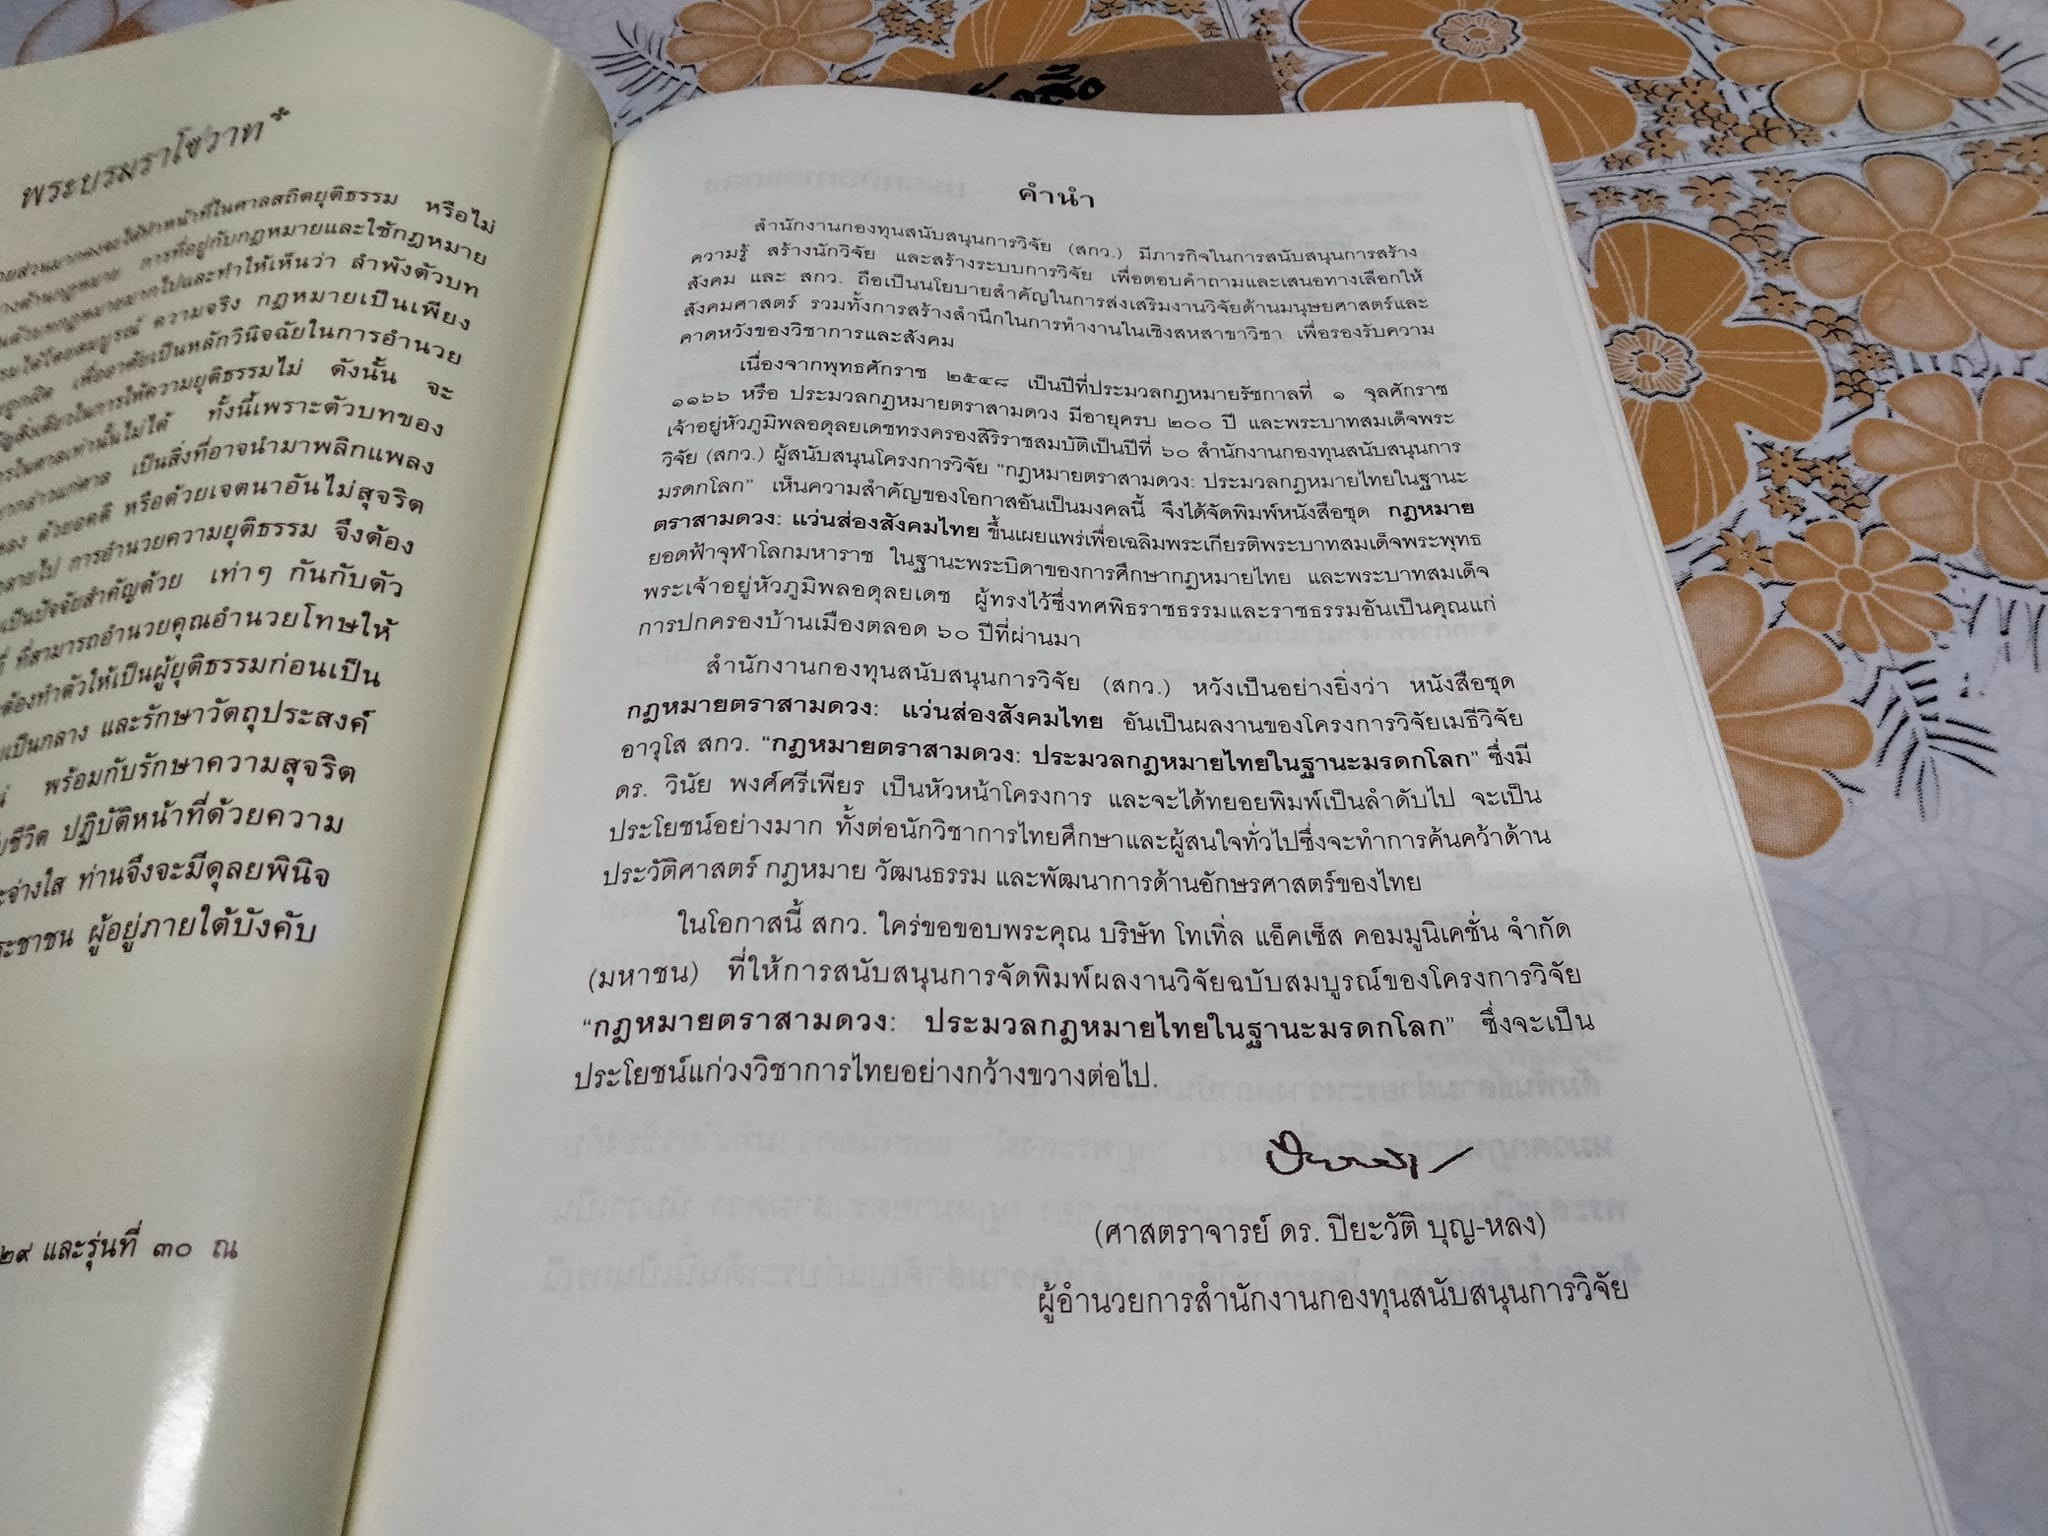 พระบรมราโชวาท*
หรือไม่
การที่อยู่กับกฎหมายและใช้กฎหมาย
มากไปและทำให้เห็นว่า ลำพังตัวบท
ความจริง กฎหมายเป็นเพียง
เพื่ออาศัยเป็นหลักวินิจฉัยในการอำนวย
ในการให้ความยุติธรรมไม่ ดังนั้น จะ
เท่านั้นไม่ได้ ทั้งนี้เพราะตัวบทของ
เป็นสิ่งที่อาจนำมาพลิกแพลง
ด้วยอคติ หรือด้วยเจตนาอันไม่สุจริต
การอำนวยความยุติธรรม จึงต้อง
เป็นปัจจัยสำคัญด้วย เท่าๆ กันกับตัว
ที่สามารถอำนวยคุณอำนวยโทษให้
ต้องทำตัวให้เป็นผู้ยุติธรรมก่อนเป็น
เป็นกลาง และรักษาวัตถุประสงค์
พร้อมกับรักษาความสุจริต
ชีวิต ปฏิบัติหน้าที่ด้วยความ
ท่านจึงจะมีดุลยพินิจ
ผู้อยู่ภายใต้บังคับ
๒๙ และรุ่นที่ ๓๐ ณ
คำนำ
สำนักงานกองทุนสนับสนุนการวิจัย (สกว.) มีภารกิจในการสนับสนุนการสร้าง
ความรู้ สร้างนักวิจัย และสร้างระบบการวิจัย เพื่อตอบคำถามและเสนอทางเลือกให้
สังคม และ สกว. ถือเป็นนโยบายสำคัญในการส่งเสริมงานวิจัยด้านมนุษยศาสตร์และ
สังคมศาสตร์ รวมทั้งการสร้างสำนึกในการทำงานในเชิงสหสาขาวิชา เพื่อรองรับความ
คาดหวังของวิชาการและสังคม
เนื่องจากพุทธศักราช ๒๕๔๘ เป็นปีที่ประมวลกฎหมายรัชกาลที่ ๑ จุลศักราช
๑๑๖๖ หรือ ประมวลกฎหมายตราสามดวง มีอายุครบ ๒๐๐ ปี และพระบาทสมเด็จพระ
เจ้าอยู่หัวภูมิพลอดุลยเดชทรงครองสิริราชสมบัติเป็นปีที่ ๖๐ สำนักงานกองทุนสนับสนุนการ
วิจัย (สกว.) ผู้สนับสนุนโครงการวิจัย "กฎหมายตราสามดวง: ประมวลกฎหมายไทยในฐานะ
มรดกโลก" เห็นความสำคัญของโอกาสอันเป็นมงคลนี้ จึงได้จัดพิมพ์หนังสือชุด กฎหมาย
ตราสามดวง: แว่นส่องสังคมไทย ขึ้นเผยแพร่เพื่อเฉลิมพระเกียรติพระบาทสมเด็จพระพุทธ
ยอดฟ้าจุฬาโลกมหาราช ในฐานะพระบิดาของการศึกษากฎหมายไทย และพระบาทสมเด็จ
พระเจ้าอยู่หัวภูมิพลอดุลยเดช ผู้ทรงไว้ซึ่งทศพิธราชธรรมและราชธรรมอันเป็นคุณแก่
การปกครองบ้านเมืองตลอด ๖๐ ปีที่ผ่านมา
สำนักงานกองทุนสนับสนุนการวิจัย (สกว.) หวังเป็นอย่างยิ่งว่า หนังสือชุด
กฎหมายตราสามดวง: แว่นส่องสังคมไทย อันเป็นผลงานของโครงการวิจัยเมธีวิจัย
อาวุโส สกว. "กฎหมายตราสามดวง: ประมวลกฎหมายไทยในฐานะมรดกโลก" ซึ่งมี
ดร. วินัย พงศ์ศรีเพียร เป็นหัวหน้าโครงการ และจะได้ทยอยพิมพ์เป็นลำดับไป จะเป็น
ประโยชน์อย่างมาก ทั้งต่อนักวิชาการไทยศึกษาและผู้สนใจทั่วไปซึ่งจะทำการค้นคว้าด้าน
ประวัติศาสตร์ กฎหมาย วัฒนธรรม และพัฒนาการด้านอักษรศาสตร์ของไทย
ในโอกาสนี้ สกว. ใคร่ขอขอบพระคุณ บริษัท โทเทิ่ล แอ็คเซ็ส คอมมูนิเคชั่น จำกัด
(มหาชน) ที่ให้การสนับสนุนการจัดพิมพ์ผลงานวิจัยฉบับสมบูรณ์ของโครงการวิจัย
"กฎหมายตราสามดวง: ประมวลกฎหมายไทยในฐานะมรดกโลก" ซึ่งจะเป็น
ประโยชน์แก่วงวิชาการไทยอย่างกว้างขวางต่อไป.
(ศาสตราจารย์ ดร. ปิยะวัติ บุญ-หลง)
ผู้อำนวยการสำนักงานกองทุนสนับสนุนการวิจัย